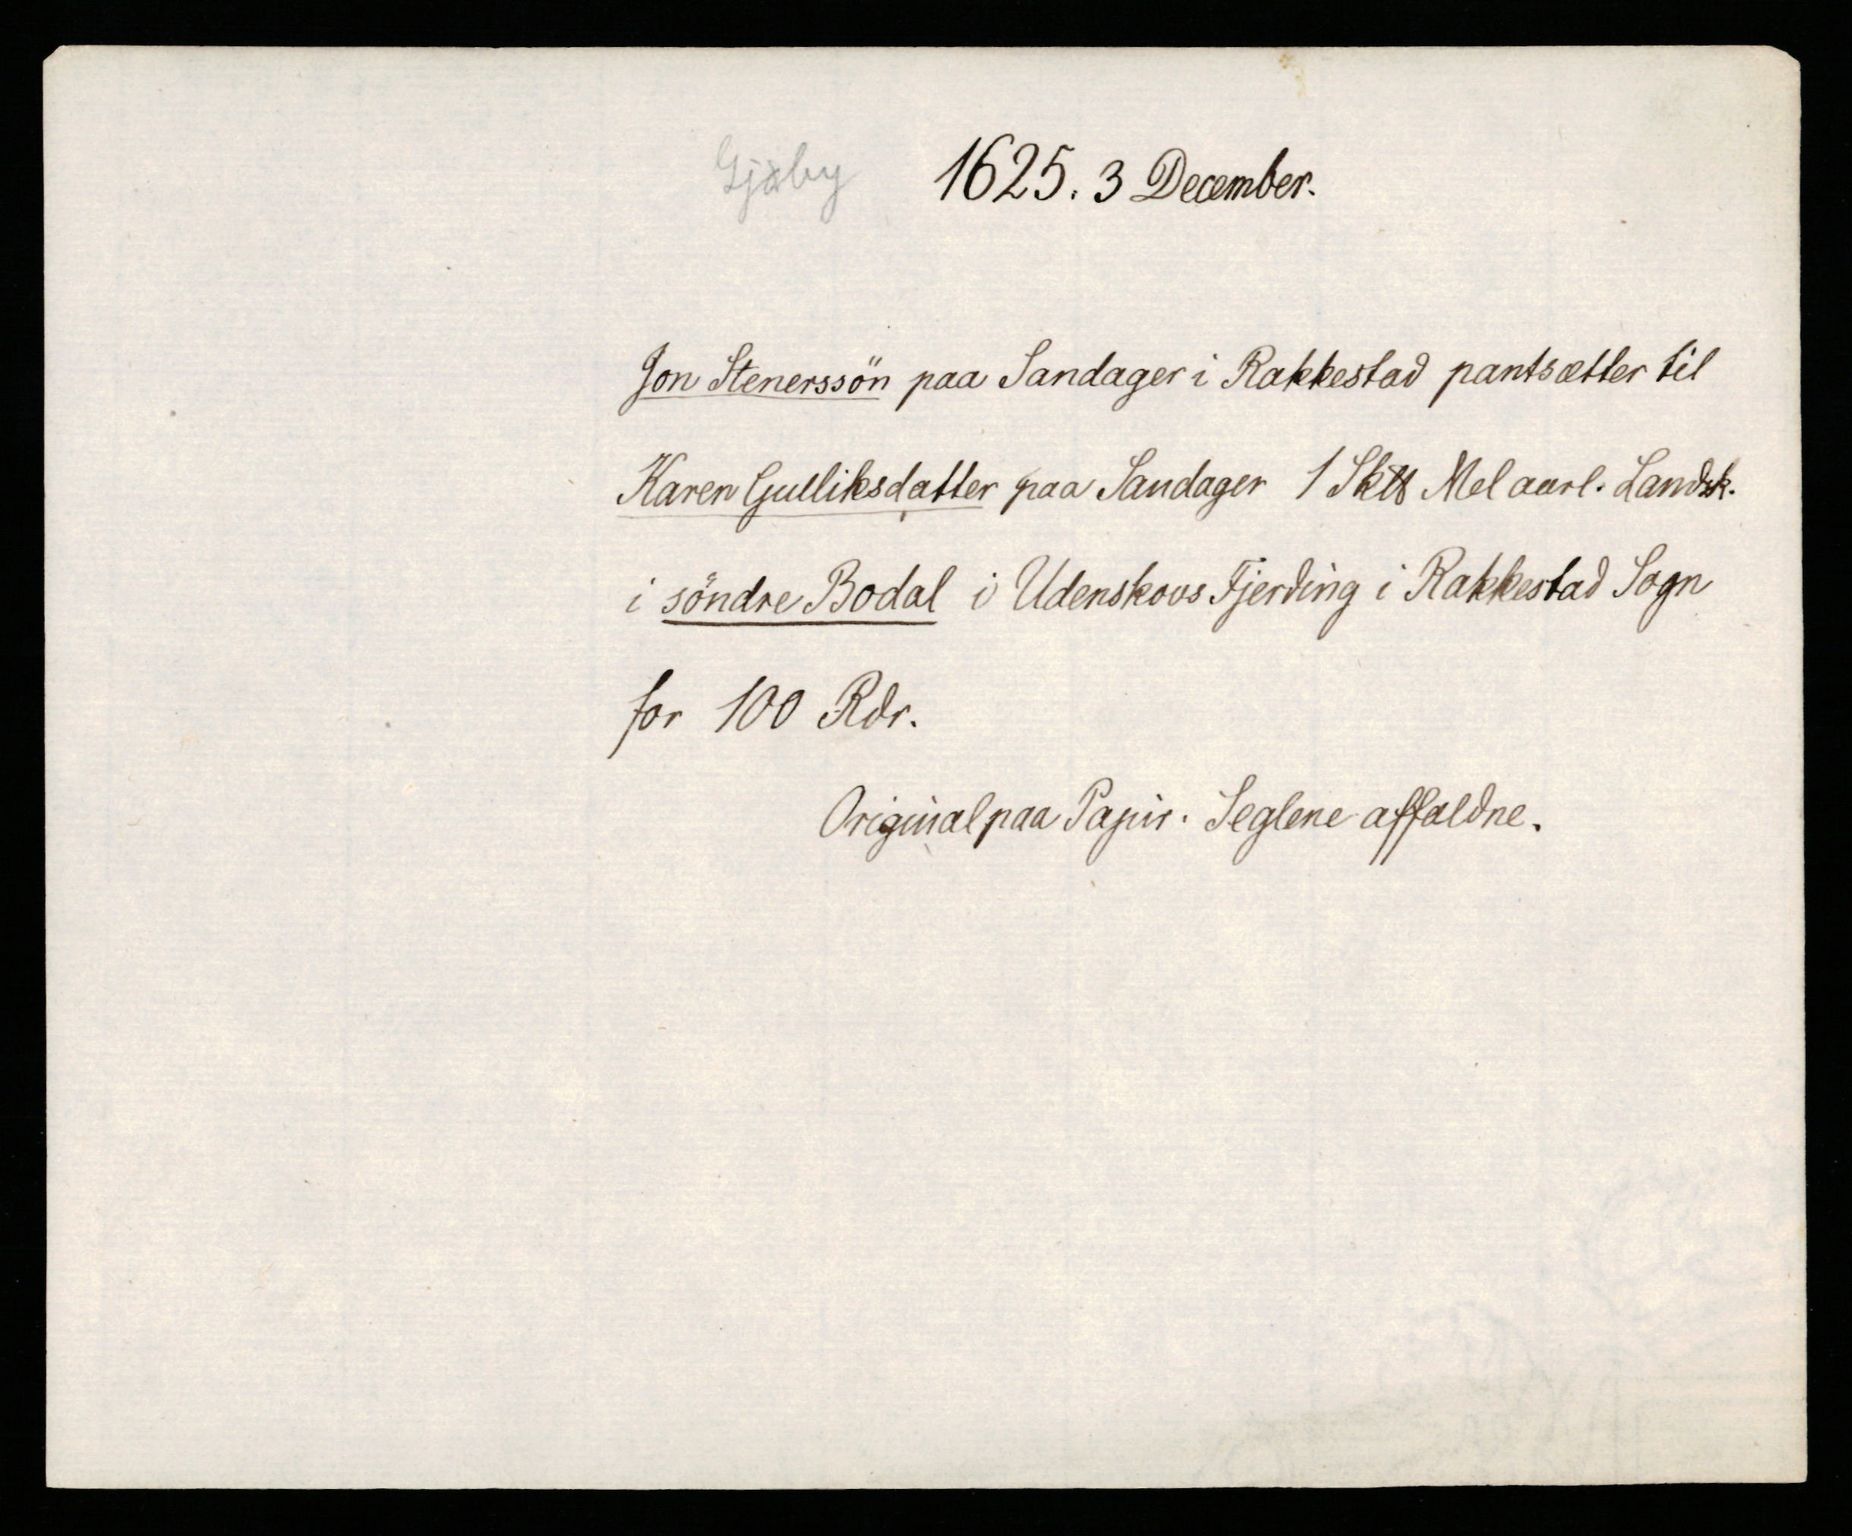 Gjøby 1625. 3 December.
Jon Stenerssön paa Sandager i Rakkestad pantsætter til
Karen Gulliksdatter paa Sandager 1 Sk℔ Mel aarl. Landsk.
i söndre Bodal i Udenskovs Fjerding i Rakkestad Sogn
for 100 Rdr.
Original paa Papir. Seglene affaldne.